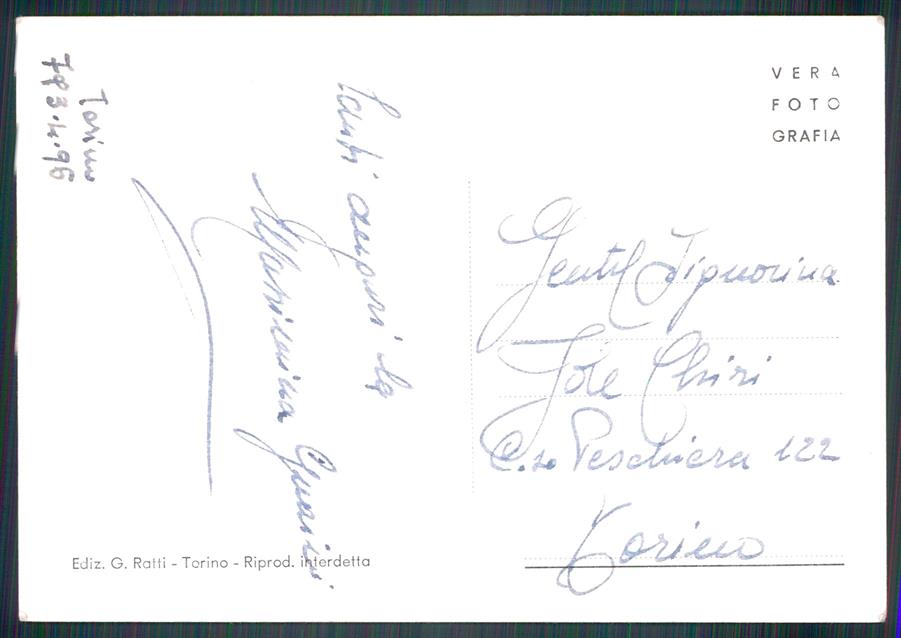 Torino
Tanti auguri la
VERA
FOTO
GRAFIA
Gentil Signorina
Chiri
C.so Peschiera 122
Torino
Ediz. G. Ratti - Torino - Riprod. interdetta